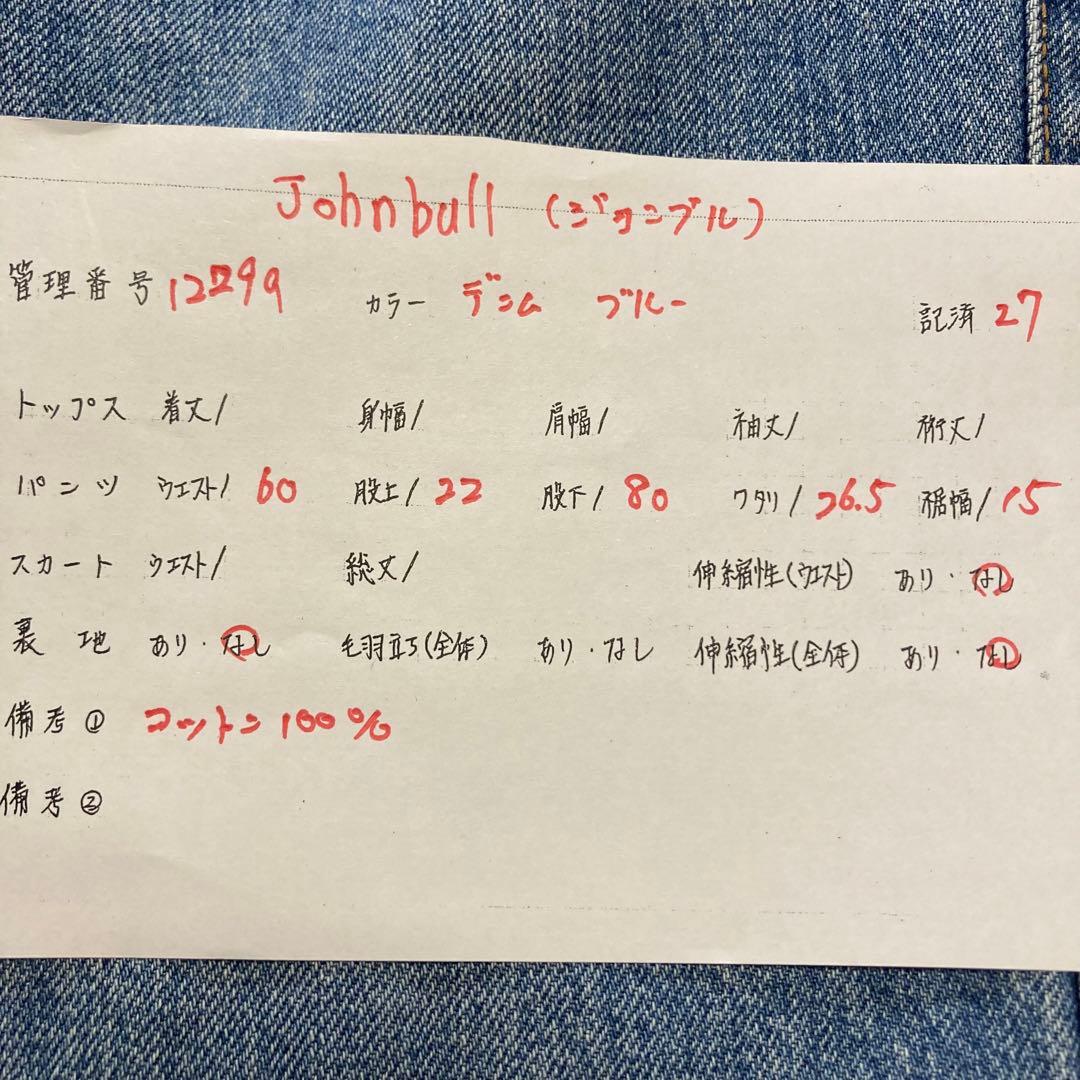 Johnbull (ジョンブル)
管理番号 12299 カラー デニム ブルー 記済 27
トップス 着丈/ 身幅/ 肩幅/ 袖丈/ 裄丈/
パンツ ウエスト/ 60 股上/ 22 股下/ 80 ワタリ/ 26.5 裾幅/ 15
スカート ウエスト/ 総丈/ 伸縮性(ウエスト) あり・なし
裏地 あり・なし 毛羽立ち(全体) あり・なし 伸縮性(全体) あり・なし
備考① コットン 100%
備考②